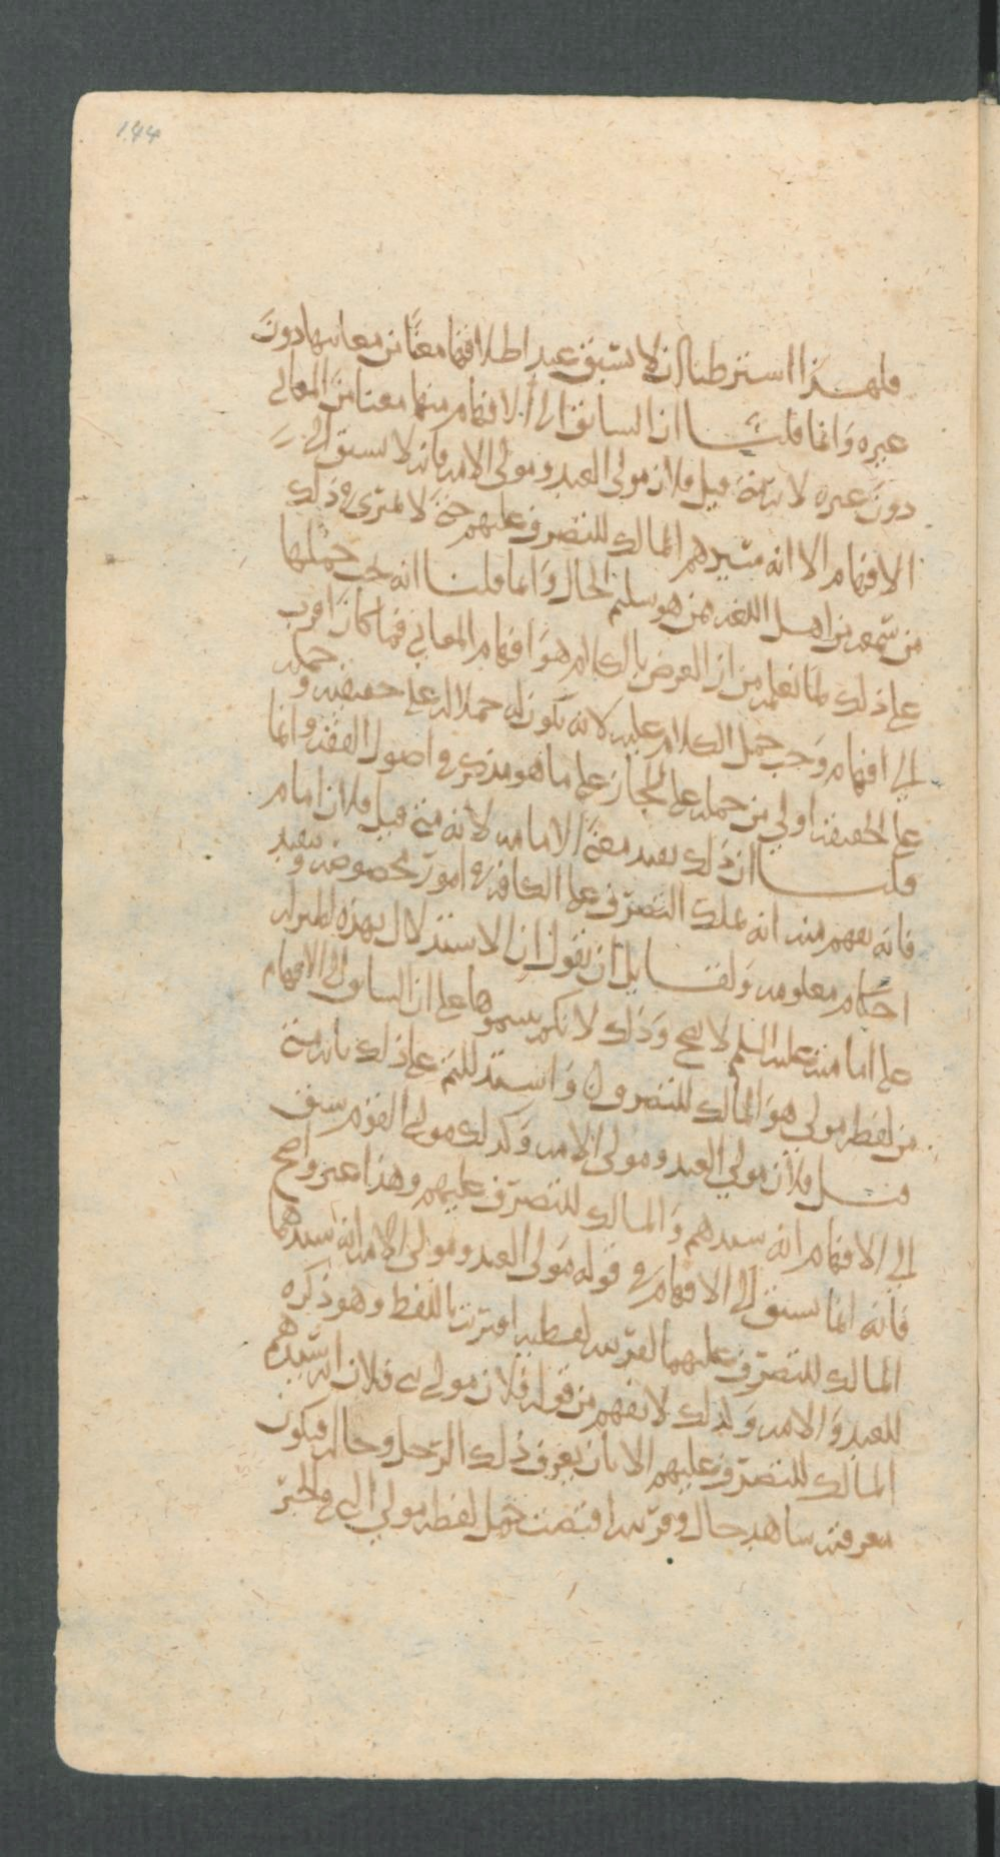 ١٤٤
فلهذا اشترطنا ان لا يسبق عند اطلاقها معنا من معانيها دون
غيره وانما قلنا ان السابق الى الافهام منها معنا من المعاني
دون غيره لانه متى قيل فلان مولى العبد ومولى الامه فانه لا يسبق الى
الافهام الا انه سيدهم المالك للتصرف عليهم حتى لا يمترى في ذلك
من سمعه من اهل اللغه ممن هو سليم الحال وانما قلنا انه يجب حملها
على ذلك لما نعلمه من ان الغرض بالكلام هو افهام المعاني فما كان اقرب
الى افهام وجب حمل الكلام عليه لانه يكون حملا له على حقيقته وحمله
على الحقيقه اولى من حمله على المجاز على ما هو مذكور في اصول الفقه وانما
قلنا ان ذلك يفيد معنى الامامه لانه متى قيل فلان امام
فانه يفهم منه انه يملك التصرف على الكافه في امور مخصوصه وتنفيذ
احكام معلومه ولقائل ان يقول ان الاستدلال بهذه الطريقه
على امامته عليه السلم لا يصح وذلك لانكم بنيتموها على ان السابق الى الافهام
من لفظه مولى هو المالك للتصرف واستدللتم على ذلك بانه متى
قيل فلان مولى العبد ومولى الامه وكذلك مولى القوم سبق
الى الافهام انه سيدهم والمالك للتصرف عليهم وهذا غير واضح
فانه انما يسبق الى الافهام في قوله مولى العبد ومولى الامه انه سيدهما
المالك للتصرف عليهما لقرينه لفظيه اقترنت باللفظ وهو ذكره
للعبد والامه ولذلك لا يفهم من قوله فلان مولى بني فلان انه سيدهم
المالك للتصرف عليهم الا بان يعرف ذلك الرجل وحاله فيكون
معرفته شاهد حال وقرينه اقتضت حمل لفظه مولى التي في الخبر